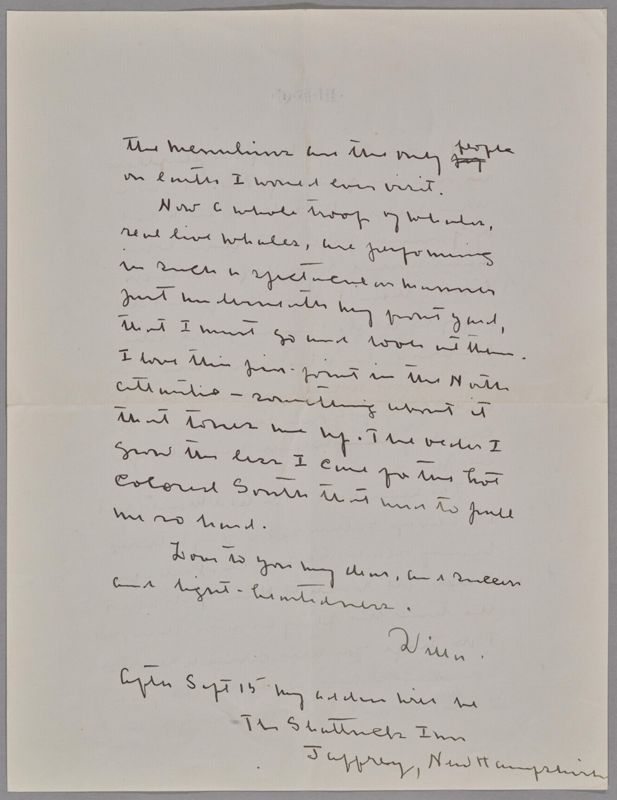 the Menuhins are the only people
on earth I would ever visit.
Now a whole troop of whales,
real live whales, are performing
in such a spectacular manner
just underneath my front yard,
that I must go and look at them.
I love this pin-point in the North
Atlantic — something about it
that tones me up. The older I
grow the less I care for the hot
colored South that used to pull
me so hard.
Love to you my dear, and success
and light-heartedness.
Willa.
After Sept 15 my address will be
The Shattuck Inn
Jaffrey, New Hampshire